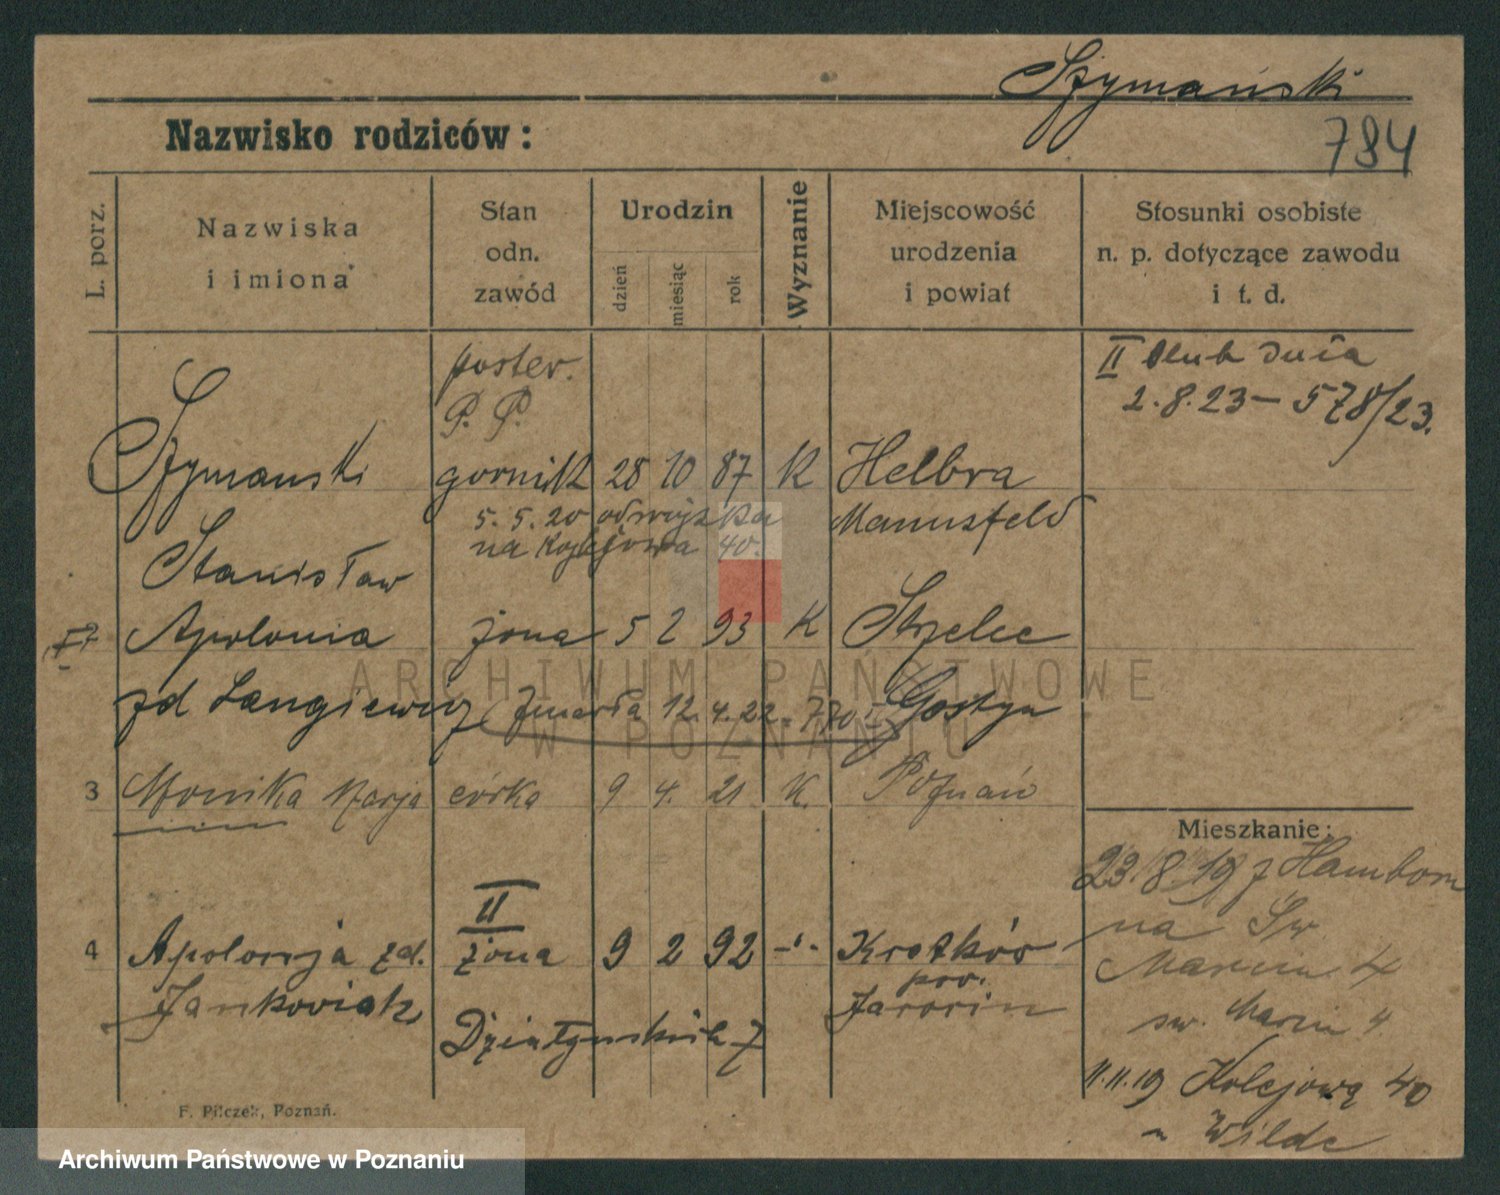 Szymański
784
Nazwisko rodziców:
L. porz.
Nazwiska
i imiona
Stan
odn.
zawód
Urodzin
dzień
miesiąc
rok
Wyznanie
Miejscowość
urodzenia
i powiat
Stosunki osobiste
n. p. dotyczące zawodu
i t. d.
II ślub dnia
2.8.23 – 578/23.
poster.
P. P.
Szymanski gornik 28 10 87 K Helbra
5.5.20 od wojska Mannsfeld
na Kolejowa 40.
Stanisław
Apolonia żona 5 2 93 K Strzelce
zd Langiewicz Zmarła 12.4.22 - 770 Gostyn
3 Monika Marja córka 9 4. 21 K. Poznań
Mieszkanie:
23.8.19 z Hamborn
na Św
Marcin 4
św. Marcin 4.
11.11.19 Kolejową 40
Wilde
II
4 Apolonja zd. żona 9 2 92 -"- Kretków
Jankowiak pow.
Jarocin
Działyńskich 7
F. Pilczek, Poznań.
ARCHIWUM PAŃSTWOWE
W POZNANIU
Archiwum Państwowe w Poznaniu